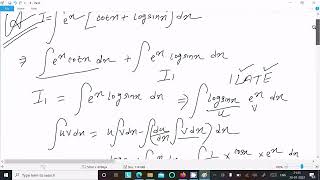 I = ∫e^x [cotx + logsinx] dx
⇒ ∫e^x cotx dx + ∫e^x logsinx dx
I₁
ILATE
I₁ = ∫e^x logsinx dx ⇒ ∫logsinx e^x dx
u v
∫uvdx = u∫vdx - ∫(du/dx ∫vdx) dx